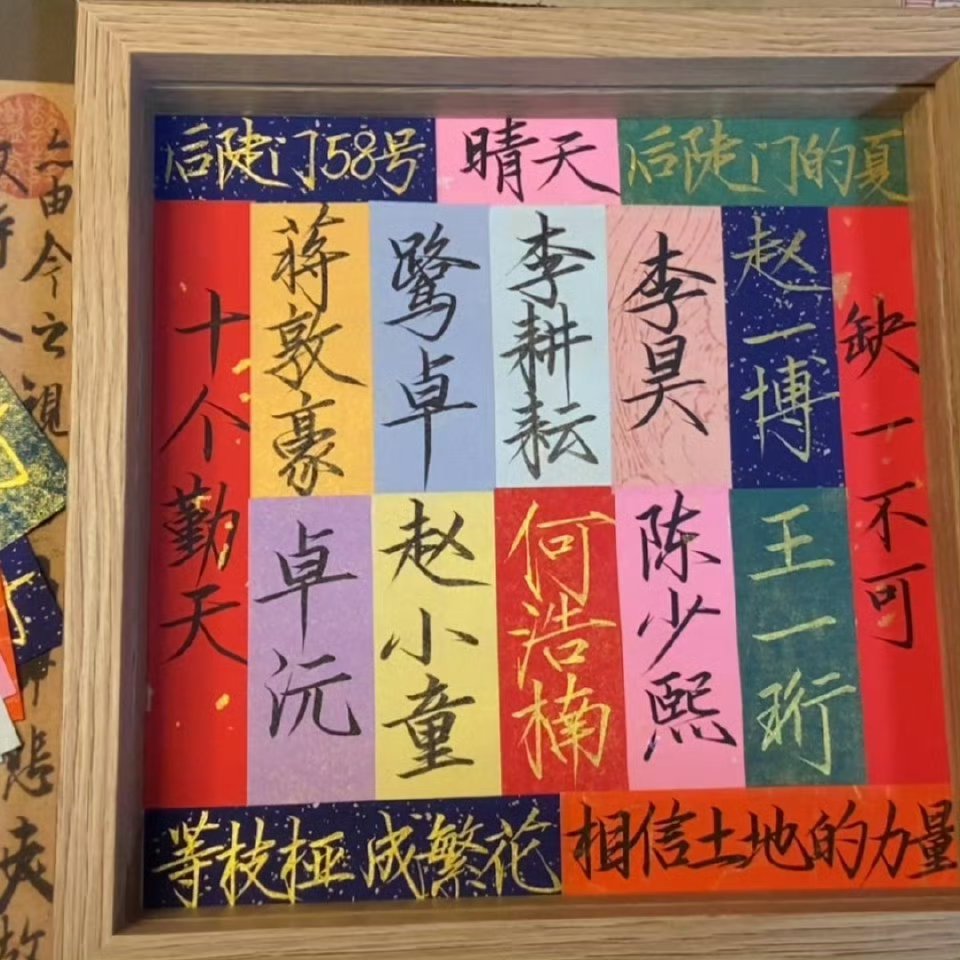 后陡门58号
晴天
后陡门的夏
十个勤天
蒋敦豪
鹭卓
李耕耘
李昊
赵一博
缺一不可
卓沅
赵小童
何浩楠
陈少熙
王一珩
等枝桠成繁花
相信土地的力量
亦由今之視
悲
故